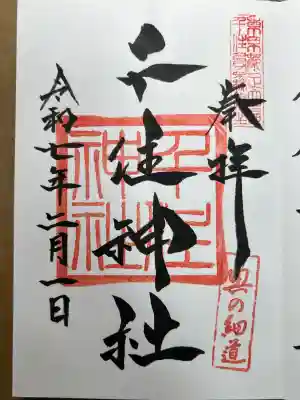 奉拝
奥の細道
千住神社
千住神社
令和七年二月一日